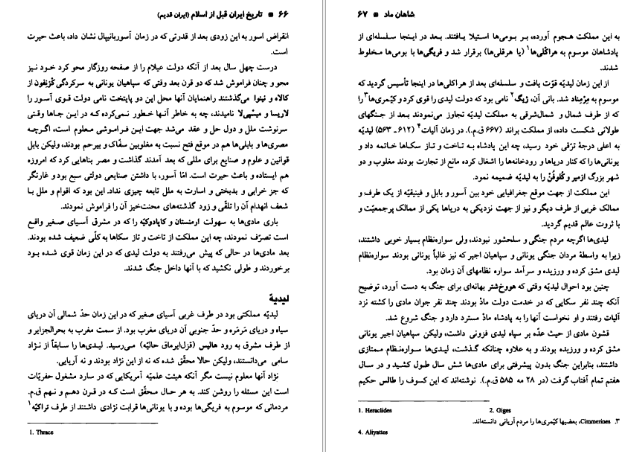 ۶۶ • تاریخ ایران قبل از اسلام (ایران قدیم)
انقراض آسور به این زودی بعد از قدرتی که در زمان آسوربانیپال نشان داد، باعث حیرت
است.
درست چهل سال بعد از آنکه دولت عیلام را از صفحه روزگار محو کرد خود نیز
محو و چنان فراموش شد که در قرن بعد وقتی که سپاهیان یونانی به سرکردگی کزنفون از
کالاه و نینوا می‌گذشتند راهنمایان آنها محل این دو پایتخت نامی دولت قوی آسور را
لاریسا و مپسی‌لا نامیدند، چه به خاطر آنها خطور نمی‌کرده که در این جاها وقتی
سرنوشت ملل و دول حل و عقد می‌شد جهت این فراموشی معلوم است، اگرچه
مصری‌ها و بابلی‌ها هم در موقع فتح نسبت به مغلوبین سفّاک و بیرحم بودند، ولیکن بابل
قوانین و علوم و صنایع برای مللی که بعد آمدند گذاشت و مصر بناهایی کرد که امروزه
هم ایستاده و باعث حیرت است. امّا آسور، با داشتن صنایعی دولتی سبع بود و غارتگر
که جز خرابی و بدبختی و اسارت به ملل تابعه چیزی نداد. این بود که اقوام و ملل با
شعف انهدام آن را تلقّی و زود گذشته‌های محنت‌خیز آن را فراموش نمودند.
باری مادی‌ها به سهولت ارمنستان و کاپادوکیّه را که در مشرق آسیای صغیر واقع
است تصرّف نمودند، چه این مملکت از تاخت و تاز سکاها به کلّی ضعیف شده بودند.
بعد مادی‌ها در حالی که پیش می‌رفتند به دولت لیدی که در این زمان قوی شده بود
برخوردند و طولی نکشید که با آنها داخل جنگ شدند.
لیدیهٔ
لیدیّه مملکتی بود در طرف غربی آسیای صغیر که در این زمان حدّ شمالی آن دریای
سیاه و دریای مَرمَره و حدّ جنوبی آن دریای مغرب بود. از سمت مغرب به بحرالجزایر و
از طرف مشرق به رود هالیس (قزل‌ایرماق حالیّه) می‌رسید. لیدی‌ها را سابقاً از نژاد
سامی می‌دانستند، ولیکن حالا محقّق شده که نه از این نژاد بودند و نه آریایی.
نژاد آنها معلوم نیست مگر آنکه هیئت علمیّه آمریکایی که در سارد مشغول حفریّات
است این مسئله را روشن کند. به هر حال محقّق است که در قرن دهم و نهم ق.م.
مردمانی که موسوم به فریگی‌ها بوده و با یونانی‌ها قرابت نژادی داشتند از طرف تراکیّه۱
1. Thrace
شاهان ماد • ۶۷
به این مملکت هجوم آورده، بر بومی‌ها استیلا یافتند. بعد در اینجا سلسله‌ای از
پادشاهان موسوم به هراکلی‌ها۱ (یا هرقلی‌ها) برقرار شد و فریگی‌ها با بومی‌ها مخلوط
شدند.
از این زمان لیدیّه قوّت یافت و سلسله‌ای بعد از هراکلی‌ها در اینجا تأسیس گردید که
موسوم به مِرْمناد شد. بانی آن، ژیگ۲ نامی بود که دولت لیدی را قوی کرد و کیّمری‌ها۳ را
که از طرف شمال و شمال‌شرقی به مملکت لیدیّه تجاوز می‌نمودند بعد از جنگهای
طولانی شکست داده، از مملکت براند (۶۶۷ ق.م). در زمان آلیات۴ (۶۱۲ـ ۵۶۳) لیدیّه
به اعلی درجهٔ ترقی خود رسید، چه این پادشاه به تاخت و تاز سکاها خاتمه داد و
یونانی‌ها را که کنار دریاها و رودخانه‌ها را اشغال کرده مانع از تجارت بودند مغلوب و دو
شهر بزرگ ازمیر و کُلوفُن را به لیدیّه ضمیمه نمود.
این مملکت از جهت موقع جغرافیایی خود بین آسور و بابل و فینیقیّه از یک طرف و
ممالک غربی از طرف دیگر و نیز از جهت نزدیکی به دریاها یکی از ممالک پرجمعیّت و
با ثروت عالم قدیم گردید.
لیدی‌ها اگرچه مردم جنگی و سلحشور نبودند، ولی سواره‌نظام بسیار خوبی داشتند،
زیرا به واسطهٔ مردان جنگی یونانی و سپاهیان اجیر که نیز غالباً یونانی بودند سواره‌نظام
لیدی مشق کرده و ورزیده و سرآمد سواره نظامهای آن زمان بود.
چنین بود احوال لیدیّه وقتی که هووخشتر بهانه‌ای برای جنگ به دست آورد، توضیح
آنکه چند نفر سکایی که در خدمت دولت ماد بودند، چند نفر جوان مادی را کشته نزد
آلیات رفتند و او نخواست آنها را به پادشاه ماد مسترد دارد و جنگ شروع شد.
قشون مادی از حیث عدّه بر سپاه لیدی فزونی داشت، ولیکن سپاهیان اجیر یونانی
مشق کرده و ورزیده بودند و به علاوه چنانکه گذشت، لیدی‌ها سواره‌نظام ممتازی
داشتند، بنابراین جنگ بدون پیشرفتی برای مادی‌ها شش سال طول کشید و در سال
هفتم تمام آفتاب گرفت (در ۲۸ مه ۵۸۵ ق.م.). نوشته‌اند که این کسوف را طالس حکیم
1. Heraclides
2. Giges
۳. Cimmeriens، بعضیها کیّمری‌ها را مردم آریانی دانسته‌اند.
4. Aliyattes